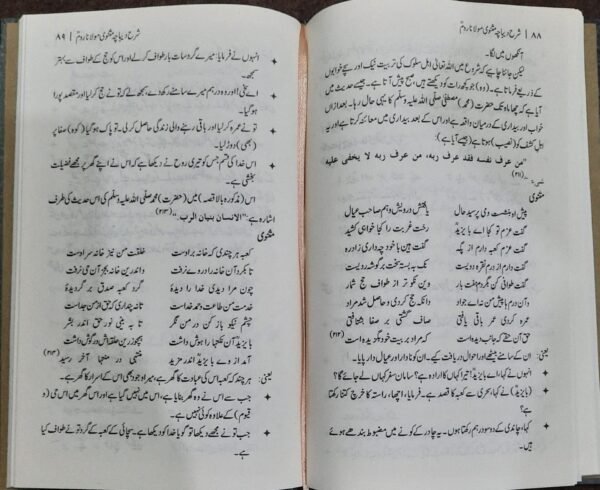 ۸۸ شرح دیباچہ مثنوی مولانا رومؒ
آنکھوں میں لگا۔
لیکن جاننا چاہیے کہ شروع میں اللہ تعالیٰ اہل سلوک کی تربیت نیک اور سچے خوابوں
کے ذریعے فرماتا ہے۔ (وہ) جو کچھ رات کو دیکھتے ہیں، صبح پیش آتا ہے۔ جیسے حدیث میں
آیا ہے کہ چھ ماہ تک حضرت (محمد) مصطفیٰ صلّی اللہ علیہ وسلّم کا یہی حال رہا۔ بعد ازاں
خواب اور بیداری کے درمیان واقعہ ہے اور اس کے بعد بیداری میں معائنہ کرتا ہے اور یہ
اہلِ کشف کو (نصیب) ہوتا ہے (جیسے آیا ہے):
”من عرف نفسه فقد عرف ربه، من عرف ربه لا يخفى عليه
شيء“ (۲۱۱)
مثنوی
پیش او بنشست و می پرسید حال یافتش درویش و ہم صاحب عیال
گفت عزم تو کجا اے بایزیدؒ رخت غربت را کجا خواہی کشید
گفت عزم کعبہ دارم از پگہ گفت ہین با خود چہ داری زادِ رہ
گفت دارم از درم نقرہ دویست نک بہ بستہ سخت بر گوشہ ردیست
گفت طوافی کن بگردم ہفت بار وین نکو تر از طواف حج شمار
وآن درم ہا پیش من نہ اے جواد دانکہ حج کردی و حاصل شد مراد
عمرہ کردی عمر باقی یافتی صاف گشتی بر صفا بشتافتی
حق آن حقے کہ جانت دیدہ است کہ مرا بر بیت خود بگزیدہ است (۲۱۲)
یعنی: ان کے سامنے بیٹھے اور احوال دریافت کیے۔ ان کو نادار اور عیال دار پایا۔
انہوں نے کہا، اے بایزیدؒ! تیرا کہاں کا ارادہ ہے؟ سامانِ سفر کہاں لے جائے گا؟
(بایزیدؒ) نے کہا، سحری سے کعبہ کا قصد ہے۔ فرمایا، اچھا، راستہ کا خرچ کتنا رکھتا
ہے؟
کہا، چاندی کے دو سو درہم رکھتا ہوں۔ یہ چادر کے کونے میں مضبوط بندھے ہوئے
ہیں۔
شرح دیباچہ مثنوی مولانا رومؒ ۸۹
انہوں نے فرمایا، میرے گرد سات بار طواف کر لے اور اس کو حج کے طواف سے بہتر
سمجھ۔
اے سخی! اور وہ درہم میرے سامنے رکھ دے، سمجھ لے کہ تو نے حج کر لیا اور مقصد پورا
ہو گیا۔
تو نے عمرہ کر لیا اور باقی رہنے والی زندگی حاصل کر لی۔ تو پاک ہو گیا (کوہِ) صفا پر
(بھی) دوڑ لیا۔
اس خدا کی قسم جس کو تیری روح نے دیکھا ہے کہ اس نے اپنے گھر پر مجھے فضیلت
بخشی ہے۔
اس (مذکورہ بالا قصہ) میں (حضرت) محمد صلّی اللہ علیہ وسلّم کی اس حدیث کی طرف
اشارہ ہے: ”الانسان بنیان الرب۔“ (۲۱۳)
مثنوی
کعبہ ہر چندی کہ خانہ بر اوست خلقت من نیز خانہ سر اوست
تا بکرد آن خانہ را در وے نرفت واندرین خانہ بجز آن حی نرفت
چون مرا دیدی خدا را دیدۂ گرد کعبہ صدق بر گردیدۂ
خدمت من طاعت و حمد خداست تا نہ پنداری کہ حق از من جداست
چشم نیکو باز کن در من نگر تا بہ بینی نور حق اندر بشر
بایزیدؒ آن نکتہا را ہوش داشت ہمچو زرین حلقہ اش در گوش داشت
آمد از وے بایزیدؒ اندر مزید منتہی در منتہا آخر رسید (۲۱۴)
یعنی: ہر چند کہ کعبہ اس کی عبادت کا گھر ہے، میرا وجود بھی اس کے اسرار کا گھر ہے۔
جب سے اس نے وہ گھر بنایا ہے، اس میں نہیں گیا ہے اور اس گھر میں اس حی (و
قیوم) کے علاوہ کوئی نہیں ہے۔
جب تو نے مجھے دیکھا تو گویا خدا کو دیکھا ہے۔ سچائی کے کعبہ کے گرد تو نے طواف کیا
ہے۔